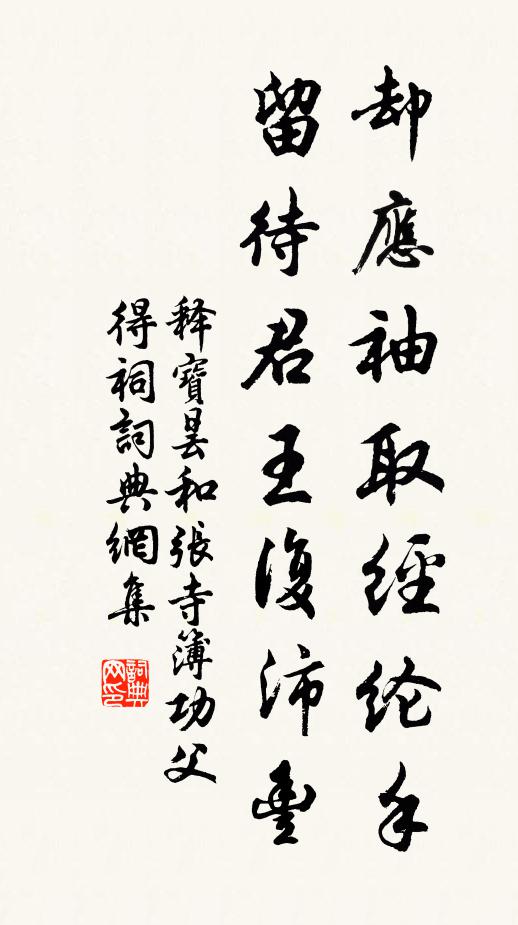 却應袖取經纶手
留待君王復沛豐
释寶曇和張寺簿功父
得祠詞典網集
詞典网印